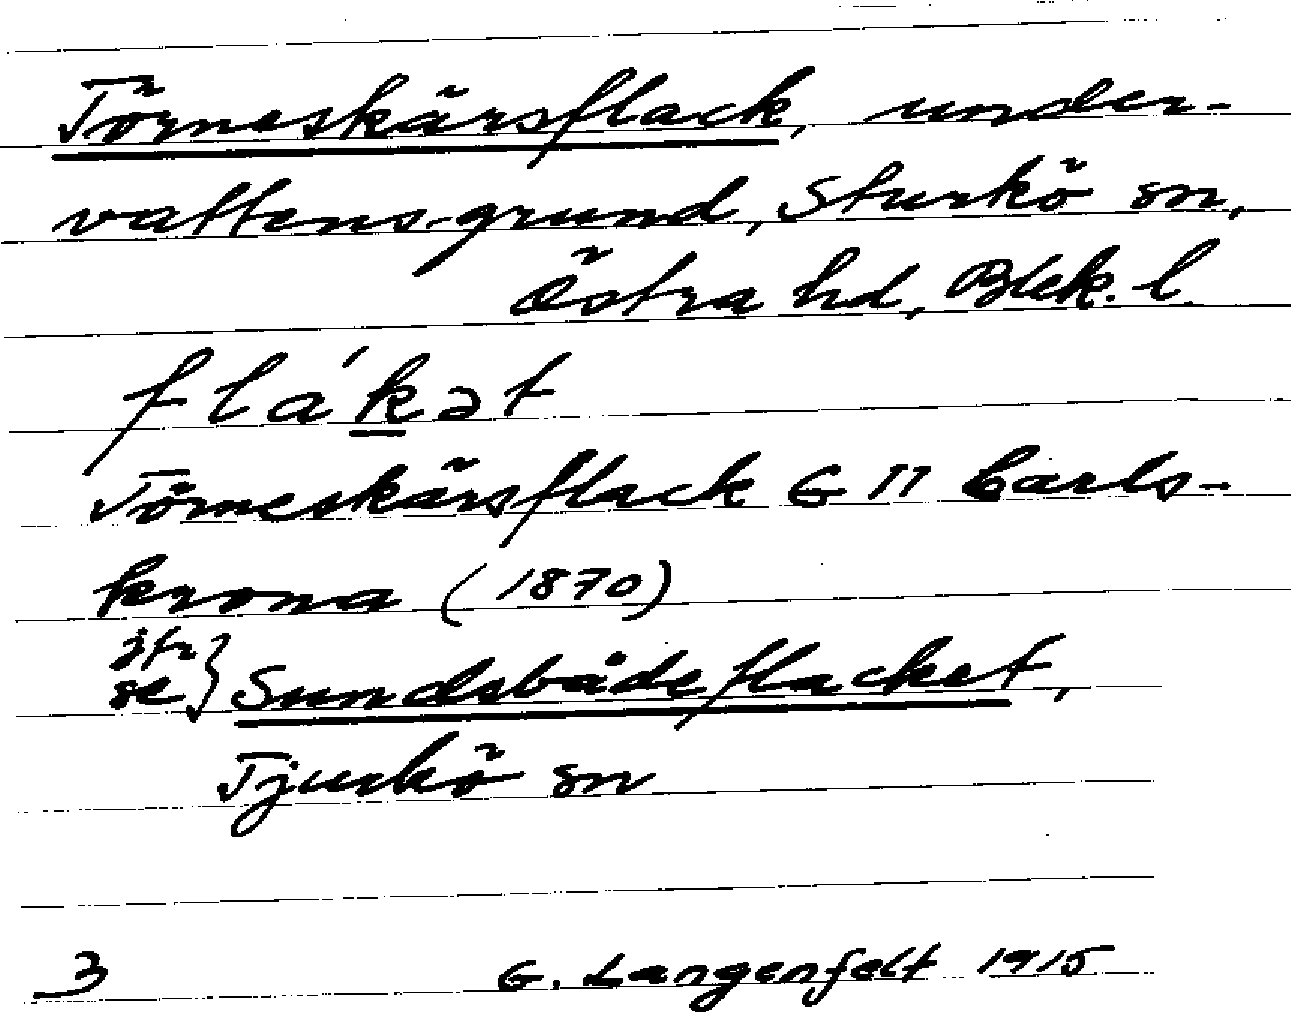 Törneskärsflack, under-
vattensgrund, Sturkö sn,
Östra hd, Blek. l.
fla´kət
Törneskärsflack G II Carls-
krona (1870)
jfr
se } Sundsbådeflacket,
Tjurkö sn
3 G. Langenfelt 1915